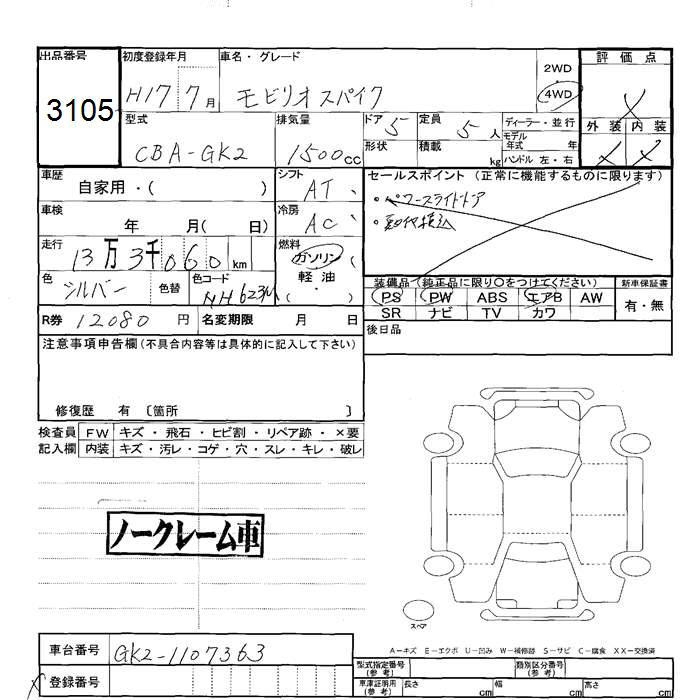 出品番号 初度登録年月 車名・グレード 評価点
3105 H17 7月 モビリオスパイク 2WD 4WD
型式 排気量 ドア 5 定員 5人 ディーラー・並行 外装 内装
CBA-GK2 1500cc 形状 積載 kg モデル年式 年 ハンドル 左・右
車歴 自家用・( ) シフト AT セールスポイント (正常に機能するものに限ります)
車検 年 月( 日) 冷房 AC ・パワースライドドア
走行 13万3千060km 燃料 ガソリン 軽油 ( )
色 シルバー 色替 色コード NH623M 装備品 (純正品に限り○をつけてください) 新車保証書
PS PW ABS エアB AW 有・無
R券 12080円 名変期限 月 日 SR ナビ TV カワ
注意事項申告欄 (不具合内容等は具体的に記入して下さい) 後日品
修復歴 有 〔箇所 〕
検査員 FW キズ・飛石・ヒビ割・リペア跡・×要
記入欄 内装 キズ・汚レ・コゲ・穴・スレ・キレ・破レ
ノークレーム車
スペア
A-キズ E-エクボ U-凹み W-補修跡 S-サビ C-腐食 XX-交換済
車台番号 GK2-1107363 型式指定番号 (参考) 類別区分番号 (参考)
登録番号 車庫証明用 (参考) 長さ cm 幅 cm 高さ cm